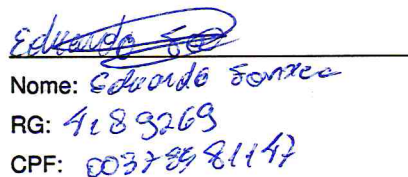 Eduardo
Nome: Eduardo Fonxec
RG: 4189269
CPF: 00378981147